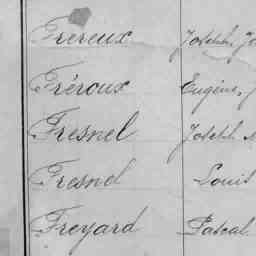 Fréreux Joseph, Jo
Fréroux Eugène, J
Fresnel Joseph M
Fresnel Louis
Freyard Pascal